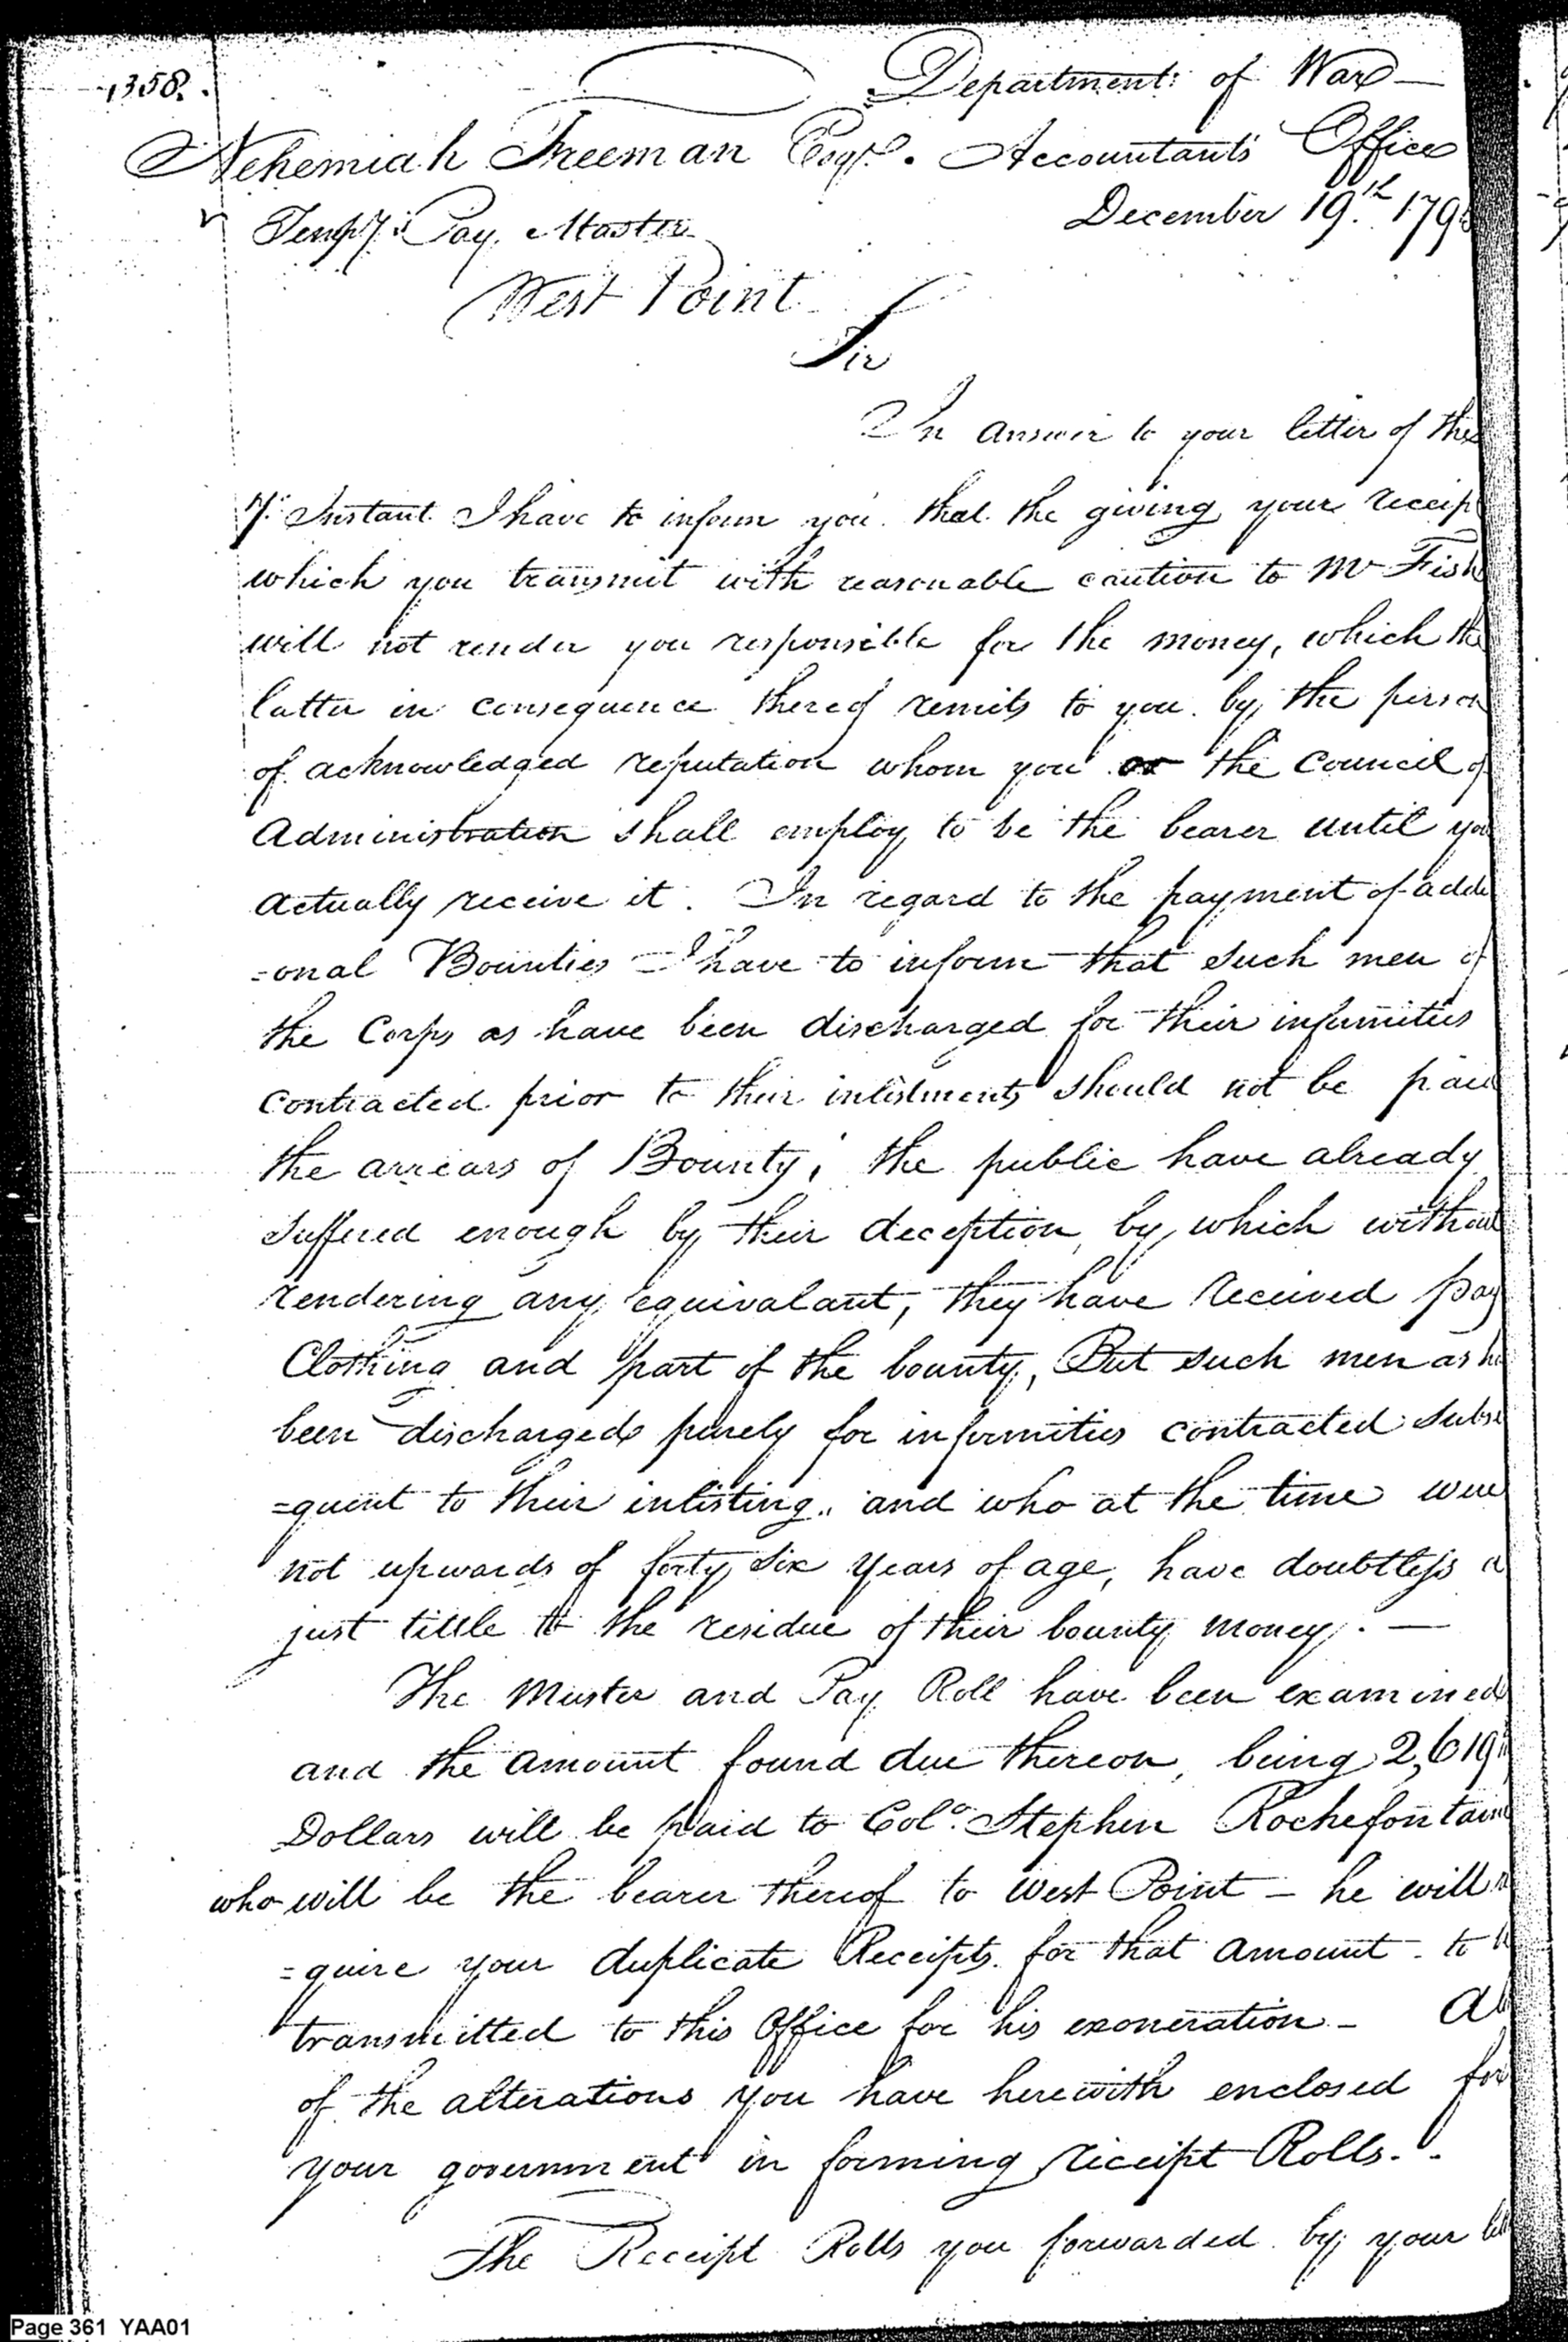 1358.
Department of War —
Nehemiah Freeman Esqr. Accountants Office
December 19th 179
Tempy Pay Master
West Point
Sir
In answer to your letter of the
7 Instant I have to inform you that the giving your receip
which you transmit with reasonable caution to Mr Fish
will not render you responsible for the money, which the
latter in consequence thereof remits to you by the person
of acknowledged reputation whom you or the Council of
Administration shall employ to be the bearer until you
actually receive it. In regard to the payment of addi
=onal Bounties I have to inform that such men of
the Corps as have been discharged for their infirmities
contracted prior to their inlistments should not be paid
the arrears of Bounty; the public have already
suffered enough by their deception, by which without
rendering any equivalant, they have received pay
Clothing and part of the bounty, But such men as ha
been discharged purely for infirmities contracted subse
=quent to their inlisting, and who at the time were
not upwards of forty six years of age, have doubtless a
just tittle to the residue of their bounty money. —
The Muster and Pay Roll have been examined
and the amount found due thereon, being 2,619
Dollars will be paid to Colo. Stephen Rochefontain
who will be the bearer thereof to West Point — he will re
=quire your duplicate Receipts for that amount to b
transmitted to this Office for his exoneration — Ab
of the alterations you have herewith enclosed for
your government in forming receipt Rolls.
The Receipt Rolls you forwarded by your let
Page 361 YAA01